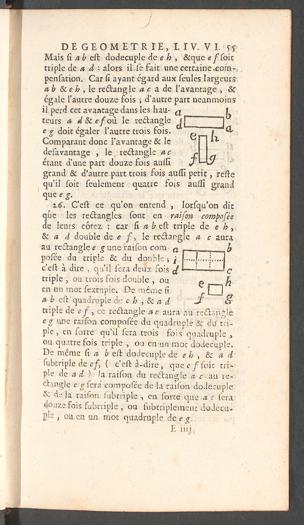 DE GEOMETRIE, LIV. VI. 55
Mais si a b est dodecuple de e h, & que e f soit
triple de a d : alors il se fait une certaine com-
pensation. Car si ayant égard aux seules largeurs
a b & e h, le rectangle a c a de l'avantage, &
égale l'autre douze fois ; d'autre part neanmoins
il perd cet avantage dans les hau-
teurs a d & e f où le rectangle
e g doit égaler l'autre trois fois.
Comparant donc l'avantage & le
desavantage, le rectangle a c
étant d'une part douze fois aussi
grand & d'autre part trois fois aussi petit, reste
qu'il soit seulement quatre fois aussi grand
que e g.
a b
d a
e h
f g
26. C'est ce qu'on entend, lorsqu'on dit
que les rectangles sont en raison composée
de leurs côtez : car si a b est triple de e h,
& a d double de e f, le rectangle a c aura
au rectangle e g une raison com-
posée du triple & du double ;
c'est à dire, qu'il sera deux fois
triple, ou trois fois double, ou
en un mot sextuple. De même si
a b est quadruple de e h, & a d
triple de e f, ce rectangle a c aura au rectangle
e g une raison composée du quadruple & du tri-
ple, en sorte qu'il sera trois fois quadruple,
ou quatre fois triple, ou en un mot dodecuple.
De même si a b est dodecuple de e h, & a d
subtriple de e f, ( c'est à-dire, que e f soit tri-
ple de a d ) la raison du rectangle a c au re-
ctangle e g sera composée de la raison dodecuple
& de la raison subtriple, en sorte que a c sera
douze fois subtriple, ou subtriplement dodecu-
ple, ou en un mot quadruple de e g.
a b
d c
e h
f g
E iiij